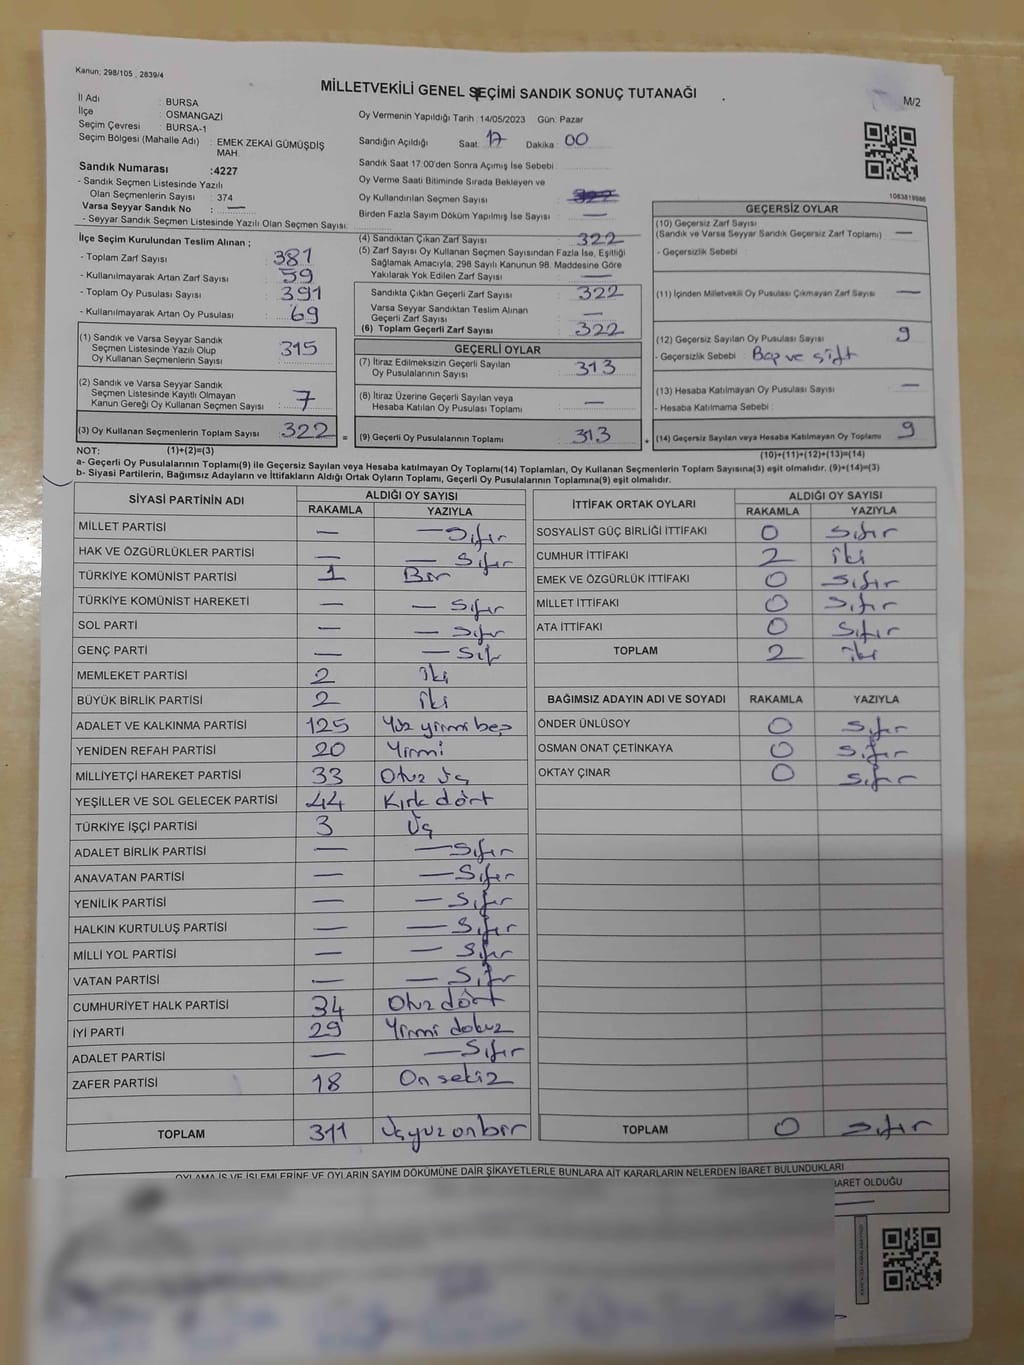 Kanun; 298/105 , 2839/4
MİLLETVEKİLİ GENEL SEÇİMİ SANDIK SONUÇ TUTANAĞI
M/2
İl Adı : BURSA
İlçe : OSMANGAZİ
Seçim Çevresi : BURSA-1
Seçim Bölgesi (Mahalle Adı) : EMEK ZEKAİ GÜMÜŞDİŞ MAH.
Sandık Numarası :4227
- Sandık Seçmen Listesinde Yazılı
Olan Seçmenlerin Sayısı : 374
Varsa Seyyar Sandık No : —
- Seyyar Sandık Seçmen Listesinde Yazılı Olan Seçmen Sayısı:
Oy Vermenin Yapıldığı Tarih :14/05/2023 Gün: Pazar
Sandığın Açıldığı Saat: 17 Dakika : 00
Sandık Saat 17:00'den Sonra Açımış İse Sebebi :
Oy Verme Saati Bitiminde Sırada Bekleyen ve
Oy Kullandırılan Seçmen Sayısı :
Birden Fazla Sayım Döküm Yapılmış İse Sayısı : —
1083819986
İlçe Seçim Kurulundan Teslim Alınan ;
- Toplam Zarf Sayısı : 381
- Kullanılmayarak Artan Zarf Sayısı : 59
- Toplam Oy Pusulası Sayısı : 391
- Kullanılmayarak Artan Oy Pusulası : 69
(1) Sandık ve Varsa Seyyar Sandık
Seçmen Listesinde Yazılı Olup
Oy Kullanan Seçmenlerin Sayısı : 315
(2) Sandık ve Varsa Seyyar Sandık
Seçmen Listesinde Kayıtlı Olmayan
Kanun Gereği Oy Kullanan Seçmen Sayısı : 7
(3) Oy Kullanan Seçmenlerin Toplam Sayısı : 322
(4) Sandıktan Çıkan Zarf Sayısı : 322
(5) Zarf Sayısı Oy Kullanan Seçmen Sayısından Fazla İse, Eşitliği
Sağlamak Amacıyla, 298 Sayılı Kanunun 98. Maddesine Göre
Yakılarak Yok Edilen Zarf Sayısı : —
Sandıkta Çıkan Geçerli Zarf Sayısı : 322
Varsa Seyyar Sandıktan Teslim Alınan
Geçerli Zarf Sayısı : —
(6) Toplam Geçerli Zarf Sayısı : 322
GEÇERLİ OYLAR
(7) İtiraz Edilmeksizin Geçerli Sayılan
Oy Pusulalarının Sayısı : 313
(8) İtiraz Üzerine Geçerli Sayılan veya
Hesaba Katılan Oy Pusulası Toplamı : —
= (9) Geçerli Oy Pusulalarının Toplamı : 313
GEÇERSİZ OYLAR
(10) Geçersiz Zarf Sayısı
(Sandık ve Varsa Seyyar Sandık Geçersiz Zarf Toplamı) : —
- Geçersizlik Sebebi :
(11) İçinden Milletvekili Oy Pusulası Çıkmayan Zarf Sayısı : —
(12) Geçersiz Sayılan Oy Pusulası Sayısı : 9
- Geçersizlik Sebebi :
(13) Hesaba Katılmayan Oy Pusulası Sayısı : —
- Hesaba Katılmama Sebebi :
+ (14) Geçersiz Sayılan veya Hesaba Katılmayan Oy Toplamı : 9
NOT: (1)+(2)=(3)
(10)+(11)+(12)+(13)=(14)
a- Geçerli Oy Pusulalarının Toplamı(9) ile Geçersiz Sayılan veya Hesaba katılmayan Oy Toplamı(14) Toplamları, Oy Kullanan Seçmenlerin Toplam Sayısına(3) eşit olmalıdır. (9)+(14)=(3)
b- Siyasi Partilerin, Bağımsız Adayların ve İttifakların Aldığı Ortak Oyların Toplamı, Geçerli Oy Pusulalarının Toplamına(9) eşit olmalıdır.
SİYASİ PARTİNİN ADI ALDIĞI OY SAYISI
RAKAMLA YAZIYLA
MİLLET PARTİSİ — — Sıfır
HAK VE ÖZGÜRLÜKLER PARTİSİ — — Sıfır
TÜRKİYE KOMÜNİST PARTİSİ 1 Bir
TÜRKİYE KOMÜNİST HAREKETİ — — Sıfır
SOL PARTİ — — Sıfır
GENÇ PARTİ — — Sıf
MEMLEKET PARTİSİ 2 iki
BÜYÜK BİRLİK PARTİSİ 2 iki
ADALET VE KALKINMA PARTİSİ 125 Yüz yirmi beş
YENİDEN REFAH PARTİSİ 20 Yirmi
MİLLİYETÇİ HAREKET PARTİSİ 33 Otuz üç
YEŞİLLER VE SOL GELECEK PARTİSİ 44 Kırk dört
TÜRKİYE İŞÇİ PARTİSİ 3 Üç
ADALET BİRLİK PARTİSİ — — Sıfır
ANAVATAN PARTİSİ — — Sıfır
YENİLİK PARTİSİ — — Sıfır
HALKIN KURTULUŞ PARTİSİ — — Sıfır
MİLLİ YOL PARTİSİ — — Sıfır
VATAN PARTİSİ — — Sıfır
CUMHURİYET HALK PARTİSİ 34 Otuz dört
İYİ PARTİ 29 Yirmi dokuz
ADALET PARTİSİ — — Sıfır
ZAFER PARTİSİ 18 On sekiz
TOPLAM 311 Üçyüz onbir
İTTİFAK ORTAK OYLARI ALDIĞI OY SAYISI
RAKAMLA YAZIYLA
SOSYALİST GÜÇ BİRLİĞİ İTTİFAKI 0 sıfır
CUMHUR İTTİFAKI 2 iki
EMEK VE ÖZGÜRLÜK İTTİFAKI 0 sıfır
MİLLET İTTİFAKI 0 sıfır
ATA İTTİFAKI 0 sıfır
TOPLAM 2 iki
BAĞIMSIZ ADAYIN ADI VE SOYADI RAKAMLA YAZIYLA
ÖNDER ÜNLÜSOY 0 sıfır
OSMAN ONAT ÇETİNKAYA 0 sıfır
OKTAY ÇINAR 0 sıfır
TOPLAM 0 sıfır
OYLAMA İŞ VE İŞLEMLERİNE VE OYLARIN SAYIM DÖKÜMÜNE DAİR ŞİKAYETLERLE BUNLARA AİT KARARLARIN NELERDEN İBARET BULUNDUKLARI
BARET OLDUĞU